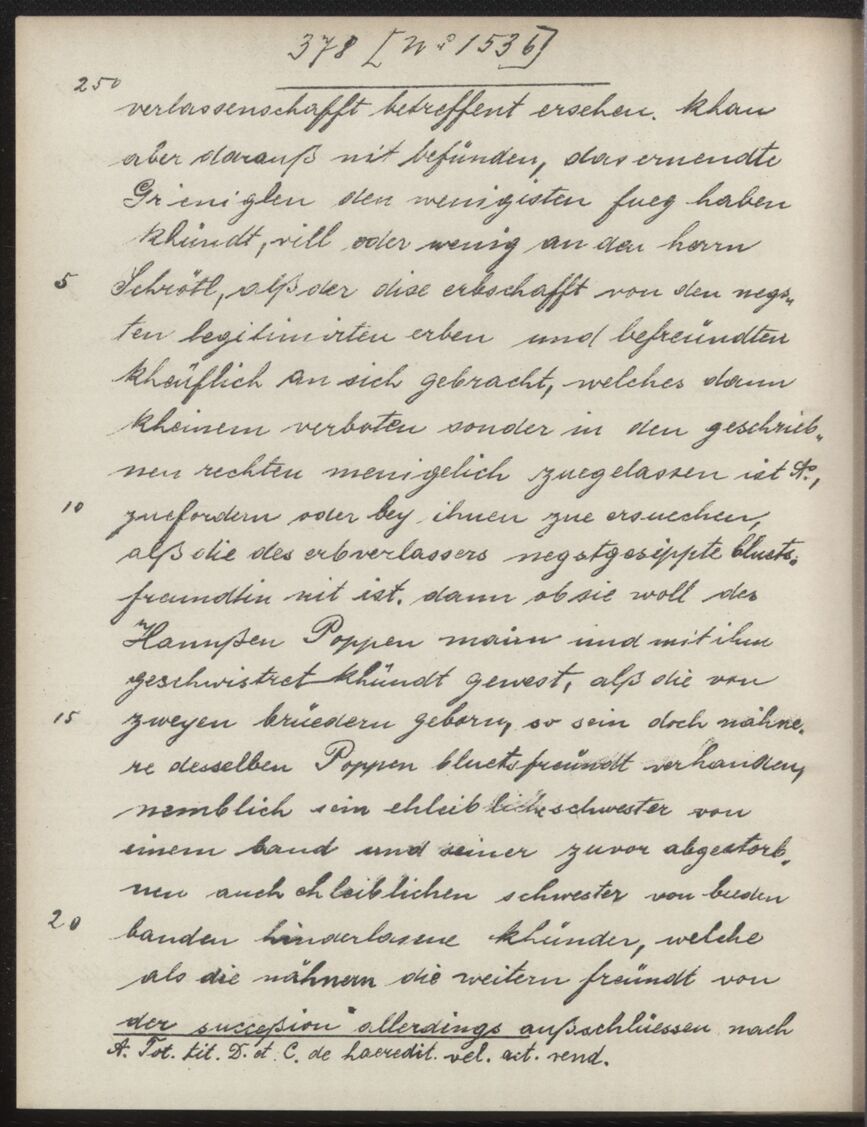 378 [No 1536]
250
verlassenschafft betreffent ersehen. khan
aber darauß nit befünden, das ernendte
Grieniglen den wenigisten fueg haben
khündt, vill oder wenig an den herrn
5 Schrötl, alß der dise erbschafft von den negs„
ten legitimirten erben und befreündten
kheüflich an sich gebracht, welches dann
kheinem verboten sonder in den geschrieb„
nen rechten menigelich zuegelassen ist A.,
10 zuefordern oder bey ihnen zue ersuechen,
alß die des erbverlassers negstgesippte bluets„
freundtin nit ist. dann ob sie woll des
Hannßen Poppen maim und mit ihm
geschwistret khündt gewest, alß die von
15 zweyen brüedern geborn, so sein doch nähne„
re desselben Poppen bluetsfreündt verhanden,
nemblich sein ehleibliche schwester von
einem band und seiner zuvor abgestorb„
nen auch ehleiblichen schwester von beeden
20 banden hinderlasene khünder, welche
als die nähnern die weitern freündt von
der sucçeßion allerdings außschlüessen nach
A. Tot. tit. D. et C. de haeredit. vel. act. vend.